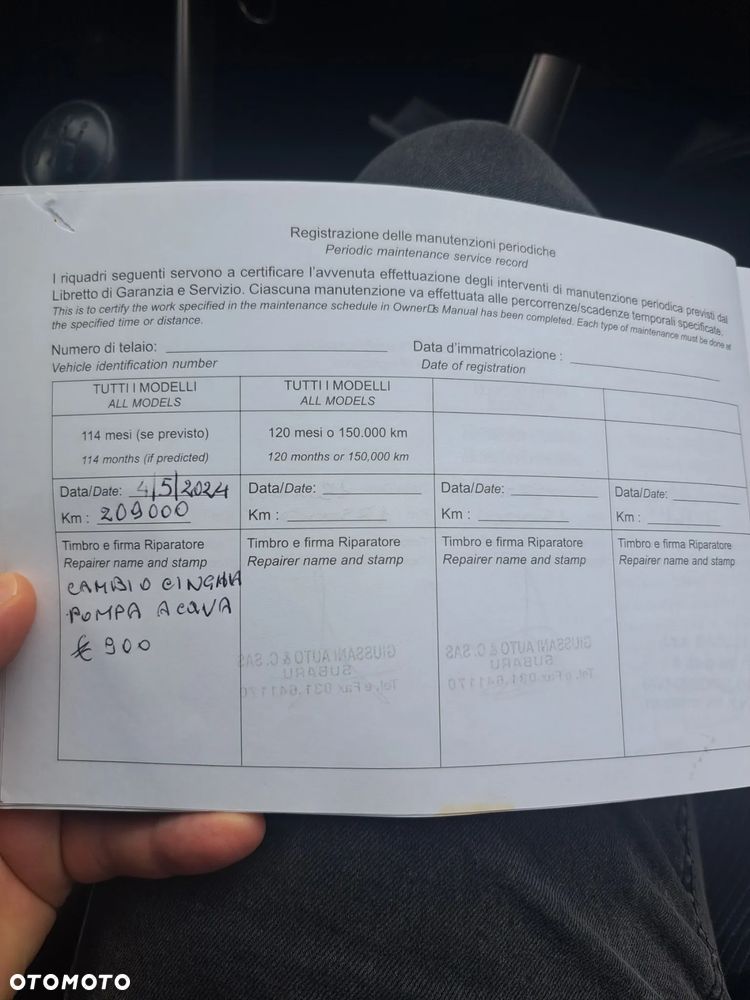 Registrazione delle manutenzioni periodiche
Periodic maintenance service record
I riquadri seguenti servono a certificare l'avvenuta effettuazione degli interventi di manutenzione periodica previsti dal
Libretto di Garanzia e Servizio. Ciascuna manutenzione va effettuata alle percorrenze/scadenze temporali specificate.
This is to certify the work specified in the maintenance schedule in Owner□s Manual has been completed. Each type of maintenance must be done at
the specified time or distance.
Numero di telaio: Data d'immatricolazione :
Vehicle identification number Date of registration
TUTTI I MODELLI TUTTI I MODELLI
ALL MODELS ALL MODELS
114 mesi (se previsto) 120 mesi o 150.000 km
114 months (if predicted) 120 months or 150,000 km
Data/Date: 4/5/2024 Data/Date: Data/Date: Data/Date:
Km : 209000 Km : Km : Km :
Timbro e firma Riparatore Timbro e firma Riparatore Timbro e firma Riparatore Timbro e firma Riparatore
Repairer name and stamp Repairer name and stamp Repairer name and stamp Repairer name and stamp
CAMBIO CINGHIA
POMPA ACQUA
€ 900
GIUSSANI AUTO & C. SAS GIUSSANI AUTO & C. SAS
SUBARU SUBARU
Tel. e Fax 031.641170 Tel. e Fax 031.641170
OTOMOTO